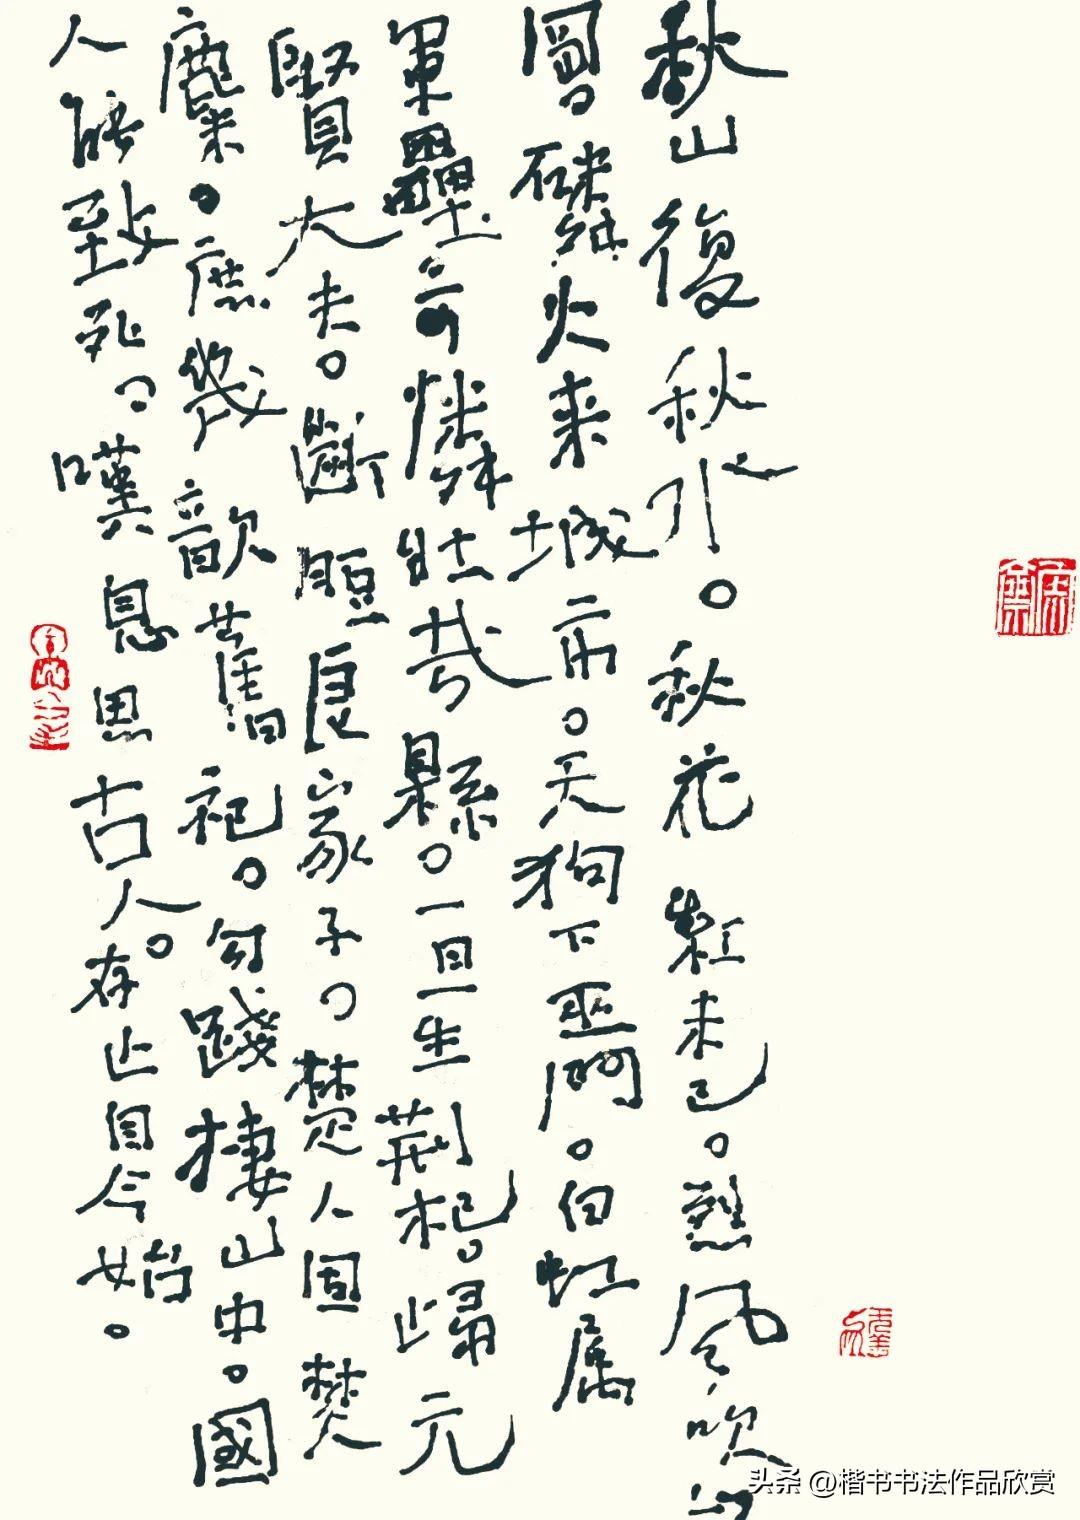 秋山復秋水。秋花紅未已。烈風吹山
岡。磷火来城市。天狗下巫門。白虹属
軍壘可憐壯哉縣。一旦生荆杞。歸元
賢大夫。斷脰良家子。楚人固焚
麋。庶幾歆舊祀。勾踐棲山中。國
人能致死。嘆息思古人。存亡自今始。
头条 @楷书书法作品欣赏